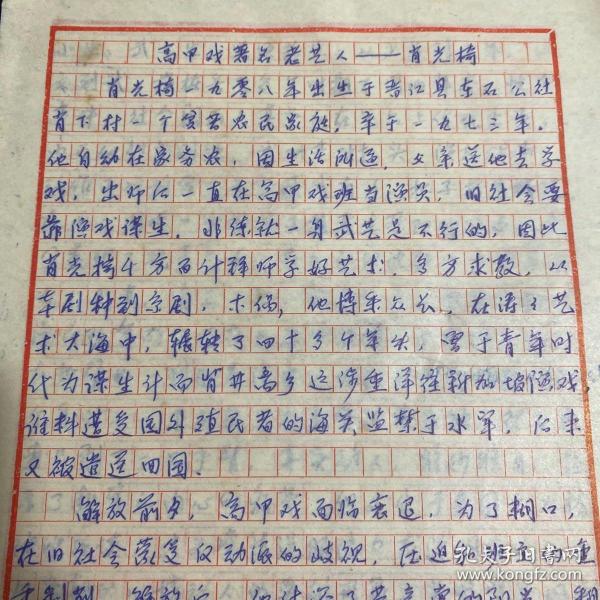 高甲戏著名老艺人——肖光椅
肖光椅一九零八年出生于晋江县东石公社
肖下村一个贫苦农民家庭，卒于一九七三年。
他自幼在家务农，因生活所迫，父亲送他去学
戏，出师后一直在高甲戏班当演员，旧社会要
靠演戏谋生，非练就一身武艺是不行的，因此
肖光椅千方百计择师学好艺术，多方求教，从
本剧种到京剧，木偶，他博采众长，在涛涛艺
术大海中，辗转了四十多个年头，曾于青年时
代为谋生计而背井离乡远涉重洋往新加坡演戏
谁料遭受国外殖民者的海关监禁于水牢，后来
又被遣送回国。
解放前夕，高甲戏面临衰退，为了糊口，
在旧社会蒙受反动派的歧视，压迫
孔夫子旧书网
www.kongfz.com